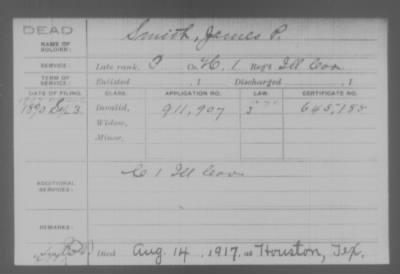 DEAD
Smith, James P.
NAME OF SOLDIER:
SERVICE: Late rank, P Co. H, 1 Reg't Ill Cav
TERM OF SERVICE: Enlisted , 1 Discharged , 1
DATE OF FILING. CLASS. APPLICATION NO. LAW. CERTIFICATE NO.
1890 3. Invalid, 911,907 645,155
Widow,
Minor,
C 1 Ill Cav
ADDITIONAL SERVICES:
REMARKS:
Died Aug. 14, 1917, at Houston, Tex.